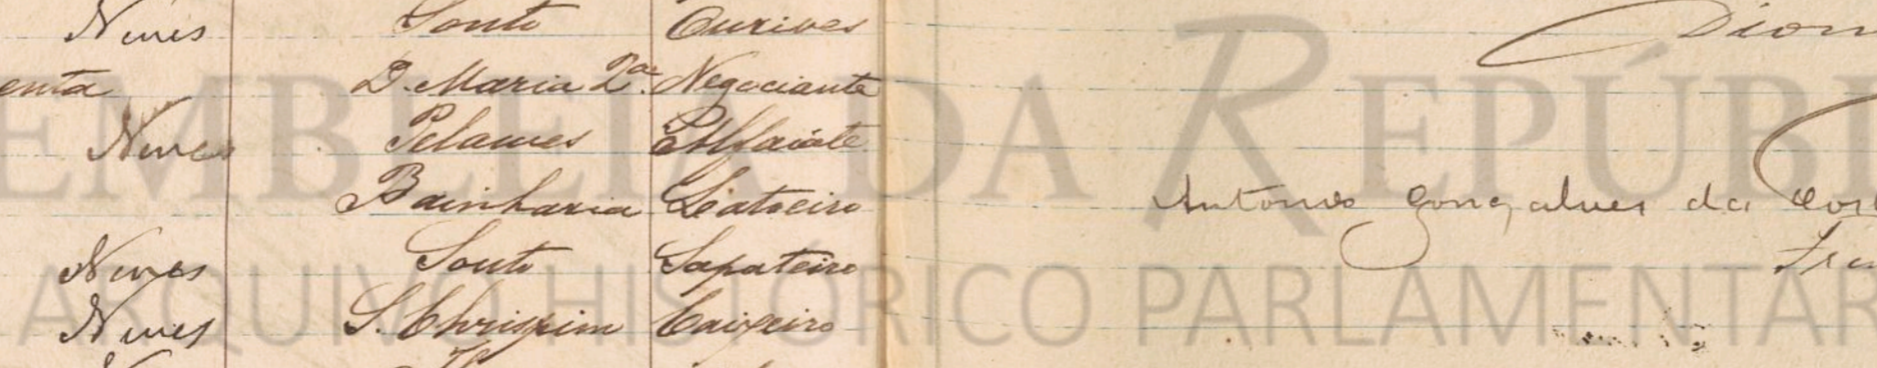 Neves Souto Ourives
enta D. Maria 2ª Negociante
Neves Pelames Alfaiate
Bainharia Latoeiro
Neves Souto Sapateiro
Neves S. Chrispim Caixeiro
Dion
Antonio Gonçalves da Cost
EMBLEIA DA REPÚBL
ARQUIVO HISTÓRICO PARLAMENTAR